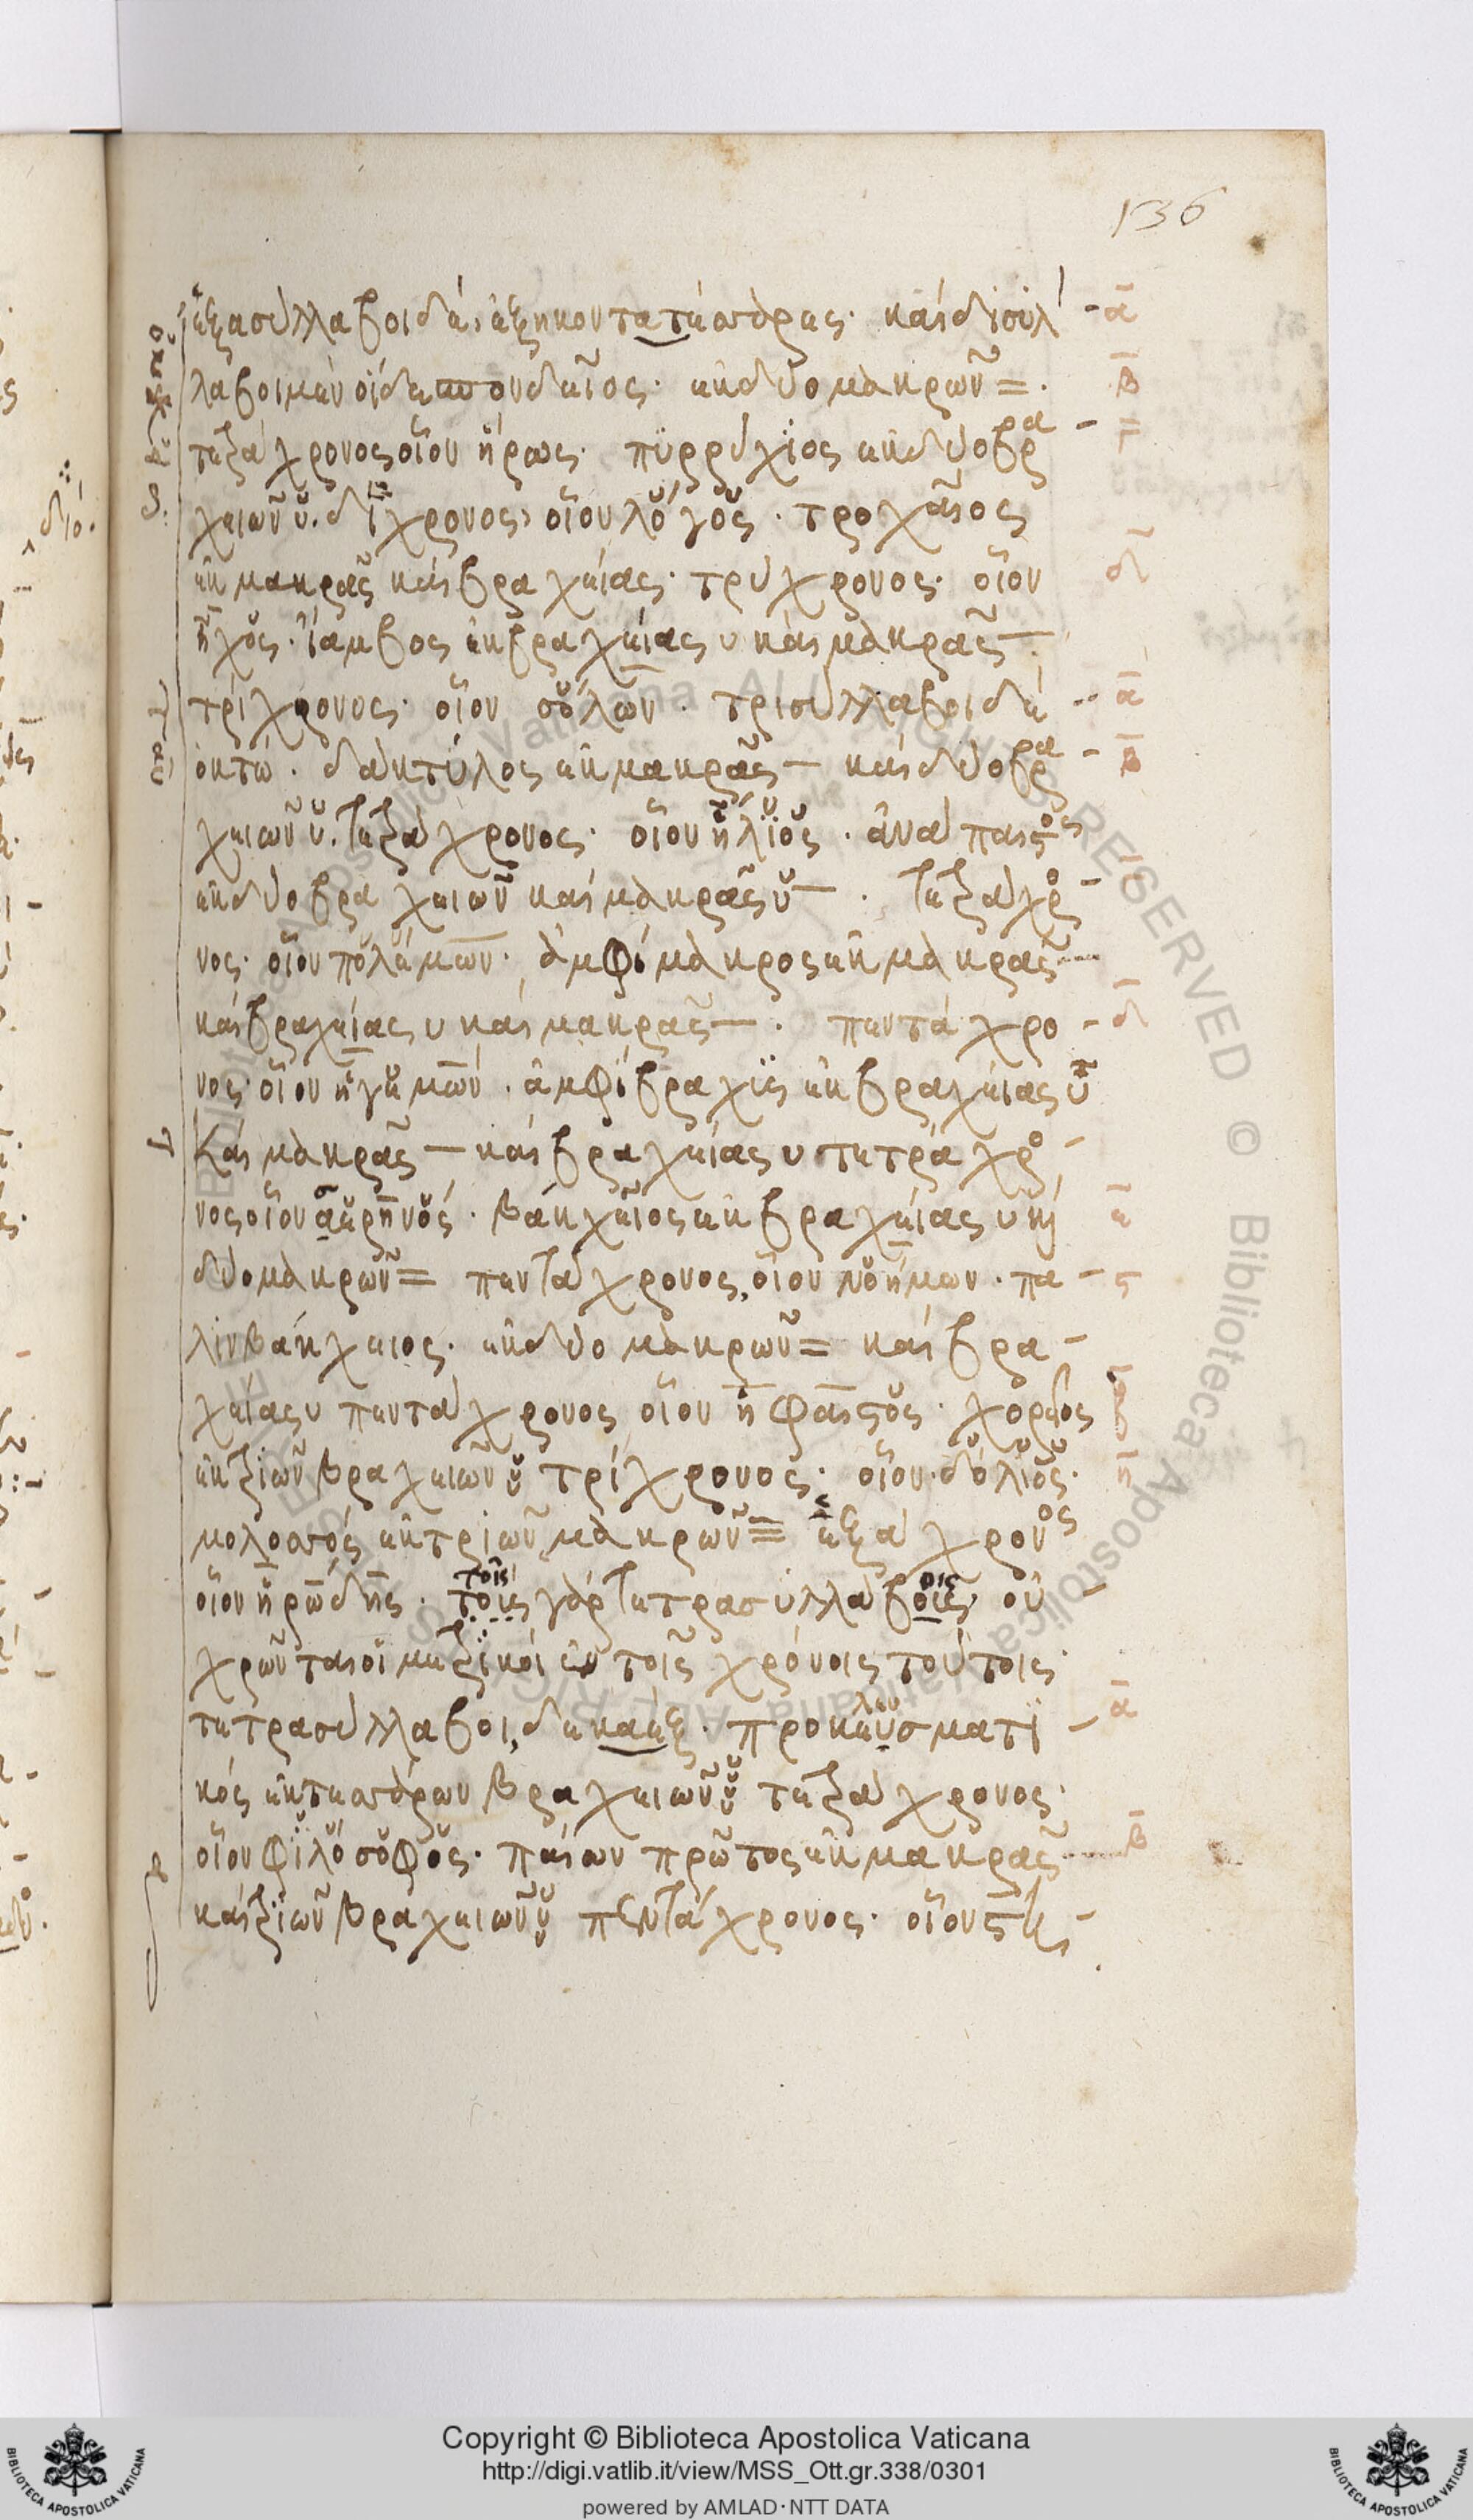 136
ἑξασύλλαβοι δὲ, ἑξηκοντατέσσαρες· καὶ δισύλ-
λαβοι μὲν οἵδε σπονδεῖος· ἐκ δύο μακρῶν =.
τετράχρονος οἷον ἥρως· πυρρίχιος ἐκ δύο βρα-
χειῶν υ. δίχρονος, οἷον λόγος. τροχαῖος
ἐκ μακρᾶς καὶ βραχείας· τρίχρονος· οἷον
ἦχος. ἴαμβος ἐκ βραχείας υ καὶ μακρᾶς –
τρίχρονος· οἷον σόλων. τρισύλλαβοι δὲ
ὀκτώ. δάκτυλος ἐκ μακρᾶς – καὶ δύο βρα-
χειῶν υ. τετράχρονος· οἷον ἥλιος. ἀνάπαιστος
ἐκ δύο βραχειῶν καὶ μακρᾶς υ –. τετράχρο-
νος· οἷον πολέμων. ἀμφίμακρος ἐκ μακρᾶς –
καὶ βραχείας υ καὶ μακρᾶς –. πεντάχρο-
νος· οἷον ἡγεμών. ἀμφίβραχις ἐκ βραχείας υ
καὶ μακρᾶς – καὶ βραχείας υ τετράχρο-
νος οἷον
βάκχειος ἐκ βραχείας υ καὶ
δύο μακρῶν = πεντάχρονος, οἷον νοήμων. πα-
λινβάκχειος· ἐκ δύο μακρῶν = καὶ βρα-
χείας υ πεντάχρονος οἷον ἥφαιστος. χορεῖος
ἐκ τριῶν βραχειῶν υ τρίχρονος· οἷον δόλιος.
μολοσσός ἐκ τριῶν μακρῶν ≡ ἑξάχρονος
οἷον ἡρώδης. τοῖς γὰρ τετρασυλλάβοις οὐ
χρῶνται οἱ μετρικοὶ ἐν τοῖς χρόνοις τούτοις·
τετρασύλλαβοι, δεκαέξ. προκελευσματι-
κός ἐκ τεσσάρων βραχειῶν τετράχρονος·
οἷον φιλόσοφος. παίων πρῶτος ἐκ μακρᾶς
καὶ τριῶν βραχειῶν πεντάχρονος· οἷον
Copyright © Biblioteca Apostolica Vaticana
http://digi.vatlib.it/view/MSS_Ott.gr.338/0301
powered by AMLAD·NTT DATA